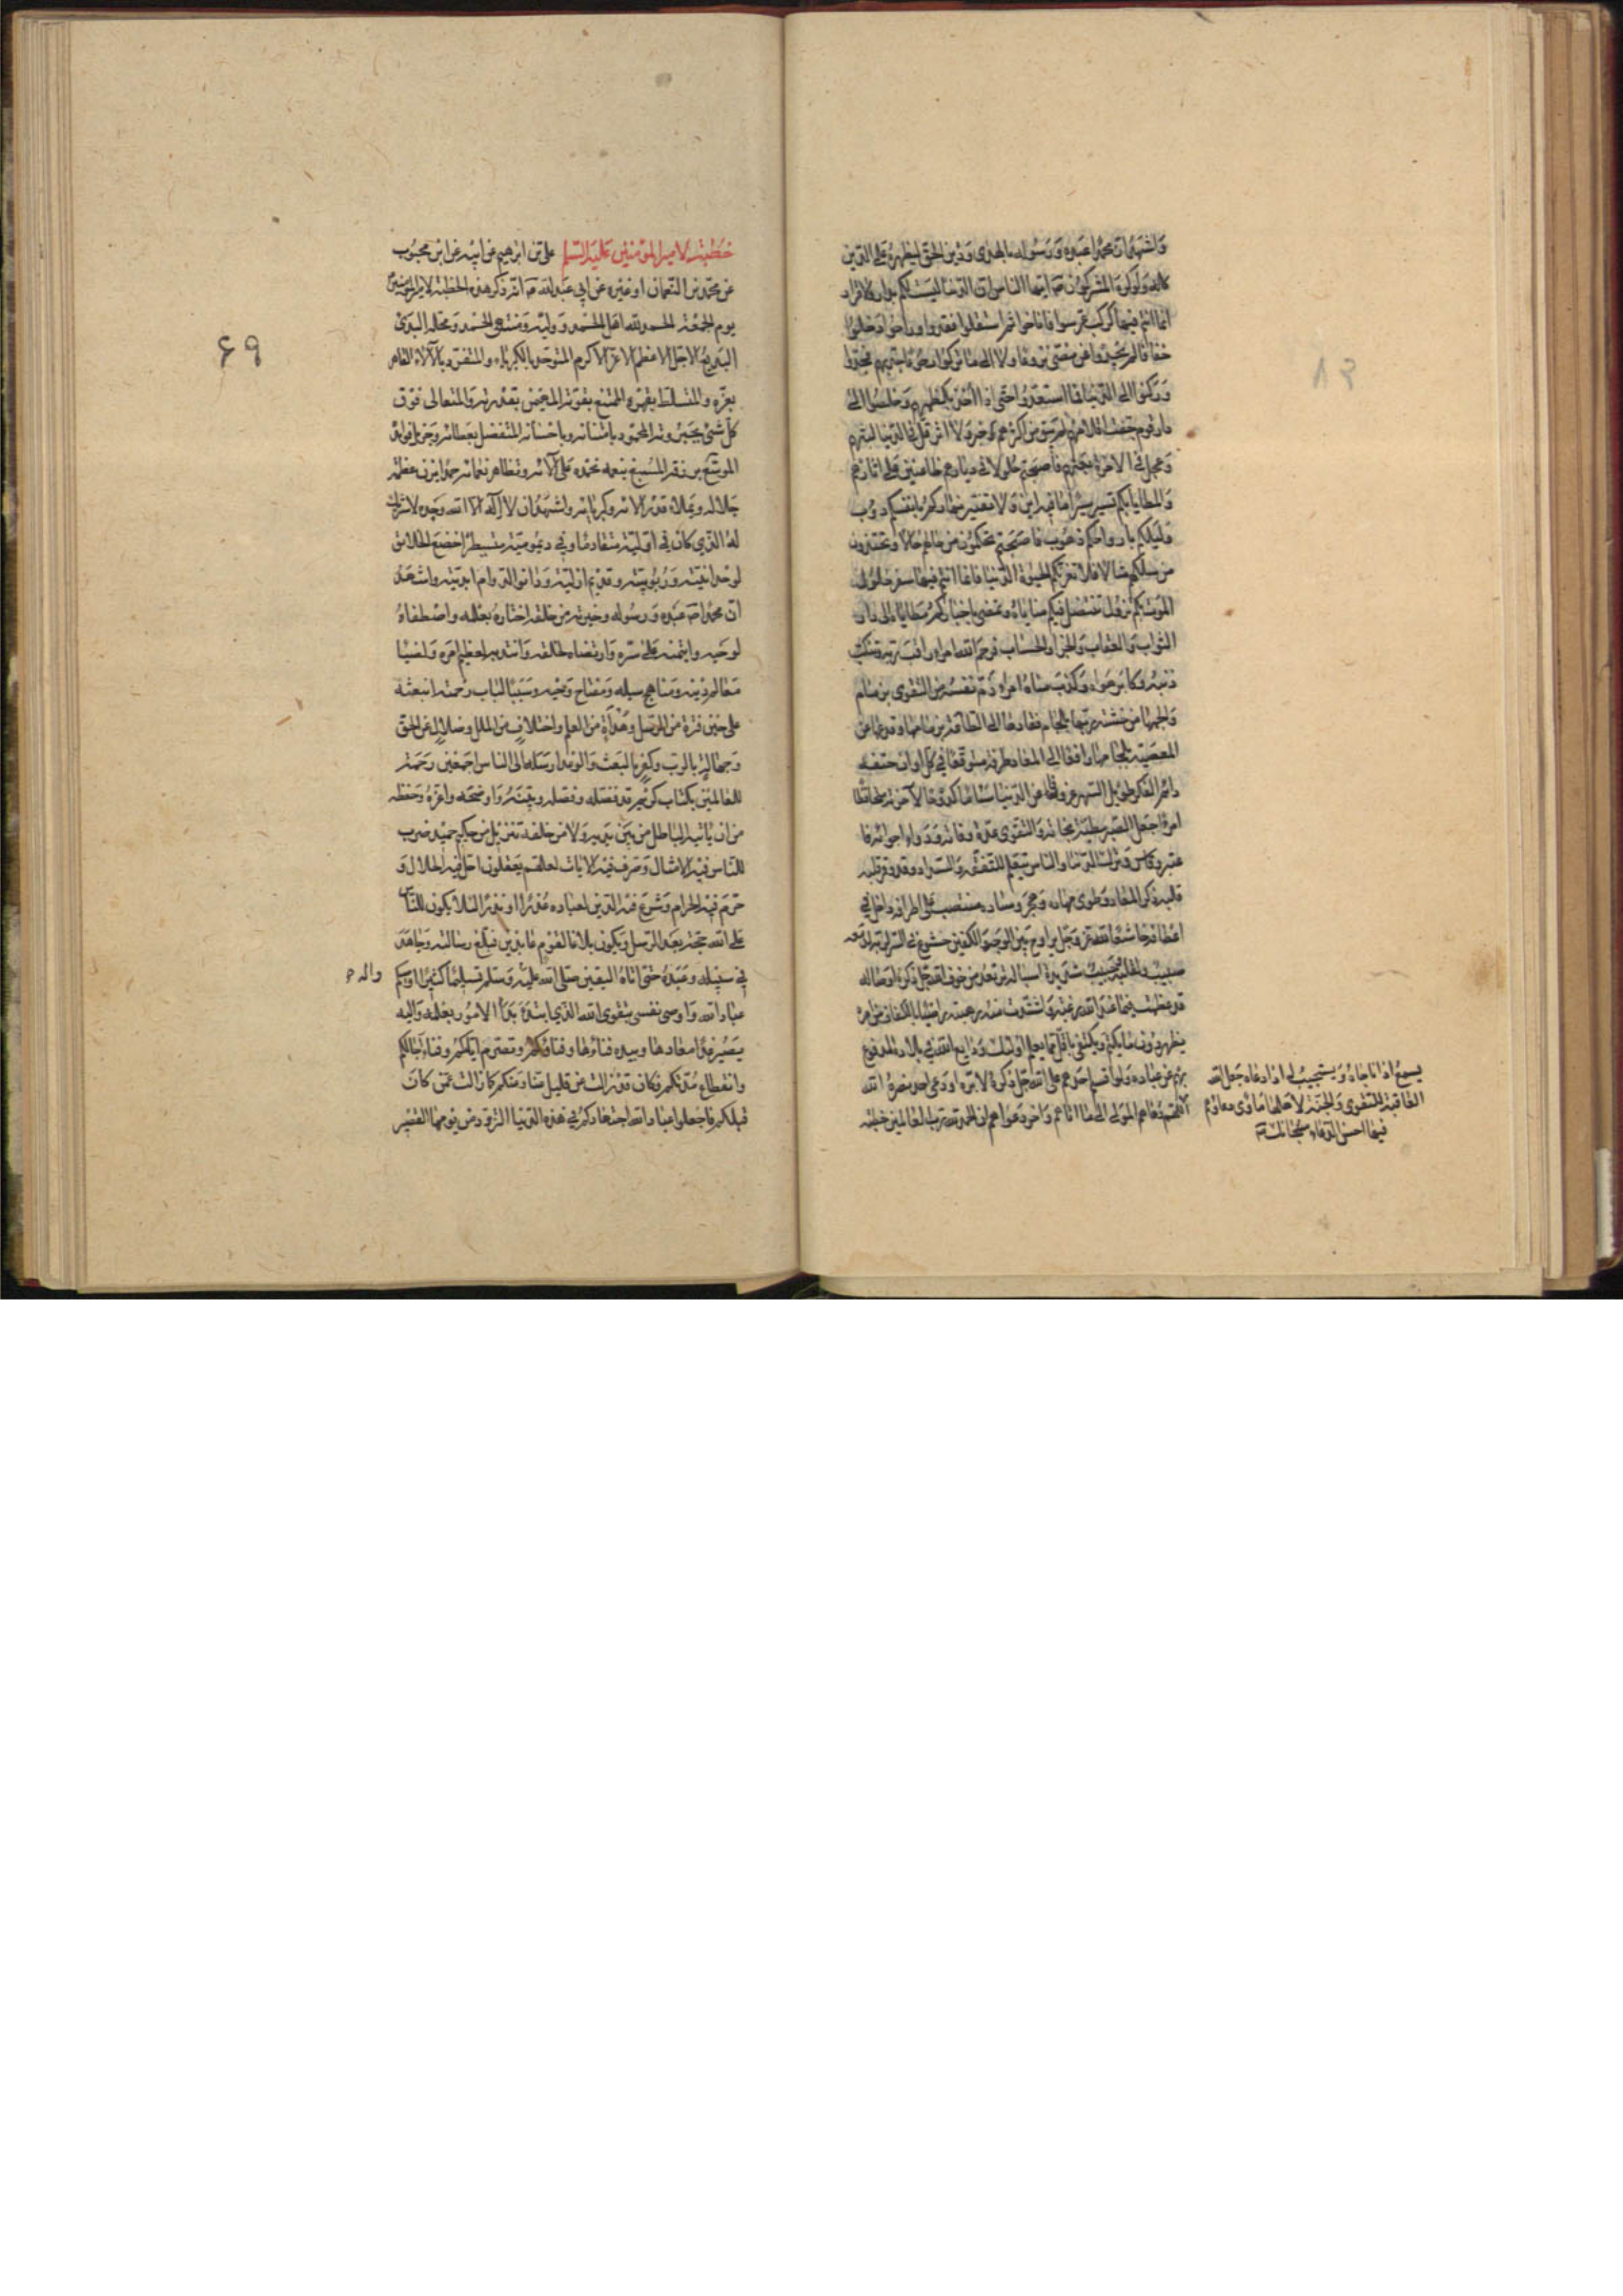 واشهد ان محمدا عبده ورسوله بالهدى ودين الحق ليظهره على الدين
كله ولو كره المشركون ايها الناس ان الدنيا ليست لكم بدار ولا قرار
انما انتم فيها كركب عرسوا فاناخوا ثم استقلوا فغدوا وراحوا دخلوا
خفافا لم يجدوا عن مضى نزوعا ولا الى ما تركوا رجوعا جد بهم فجدوا
وركنوا الى الدنيا فما استعدوا حتى اذا اخذ بكظمهم وخلصوا الى
دار قوم جفت اقلامهم لم يبق من اكثرهم خبر ولا اثر قل في الدنيا لبثهم
وعجل الى الاخرة بعثهم فاصبحتم حلولا في ديارهم ظاعنين على اثارهم
والمطايا بكم تسير سيرا ما فيه اين ولا تفتير نهاركم بانفسكم دؤب
وليلكم بارواحكم ذهوب فاصبحتم تحكون من حالهم حالا وتحتذون
من مسلكهم مثالا فلا تغرنكم الحيوة الدنيا فانما انتم فيها سفر حلول
الموت بكم نزول تنتضل فيكم مناياه وتمضي باخباركم مطاياه الى دار
الثواب والعقاب والجزاء والحساب فرحم الله امرء راقب ربه وتنكب
ذنبه وكابر هواه وكذب مناه امرء زم نفسه من التقوى بزمام
والجمها من خشية ربها بلجام فقادها الى الطاعة بزمامها وقدعها عن
المعصية بلجامها رافعا الى المعاد طرفه متوقعا في كل اوان حتفه
دائم الفكر طويل السهر عزوفا عن الدنيا سئاما كدوحا لاخرته متحافظا
امرء جعل الصبر مطية نجاته والتقوى عدة وفاته ودواء اجوائه فا
عتبر وقاس وترك الدنيا والناس يتعلم للتفقه والسداد وقد وقر قلبه
قلبه ذكر المعاد وطوى مهاده وهجر وساده منتصب على اطرافه داخل في
اعطافه خاشعا لله عز وجل يراوح بين الوجه والكفين خشوع في السر لربه لدمعه
صبيب ولقلبه وجيب شديدة اسباله ترتعد من خوف الله جل ذكره اوصاله
قد عظمت فيما عند الله رغبته واشتدت منه رهبته راضيا بالكفاف من امره
يظهر دون ما يكتم ويكتفي باقل مما يعلم اولئك ودايع الله في بلاده المدفوع
بهم عن عباده ولو اقسم احدهم على الله جل ذكره لابره او دعى احد نصره الله
اللهم دعاهم المولى الى ما اتاهم واخر دعواهم ان الحمد لله رب العالمين خطبه
يسمع اذا ناجاه ويستجيب له اذا دعاه جعل الله
العاقبة للتقوى والجنة لاهلها ماوى دعاؤهم
فيها احسن الدعاء سبحانك الله
۶۹
خطبة لامير المؤمنين عليه السلم علي بن ابرهيم عن ابيه عن ابن محبوب
عن محمد بن النعمان او غيره عن ابي عبد الله انه ذكر هذه الخطبة لامير المؤمنين
يوم الجمعة الحمد لله اهل الحمد ووليه ومنتهى الحمد ومحله البدئ
البديع الاجل الاعظم الاعز الاكرم المتوحد بالكبرياء والمتفرد بالآلاء القاهر
بعزه والمتسلط بقهره الممتنع بقوته المهيمن بقدرته والمتعالي فوق
كل شئ بجبروته المحمود بامتنانه وباحسانه المتفضل بعطائه وجزيل فوائده
الموسع برزقه المسبغ بنعمه نحمده على آلائه وتظاهر نعمائه حمدا يزن عظمة
جلاله ويملاء قدر الائه وكبريائه واشهد ان لا اله الا الله وحده لا شريك
له الذي كان في اوليته متقادما وفي ديموميته متسيطرا خضع الخلائق
لوحدانيته وربوبيته وقديم ازليته ودانوا لدوام ابديته واشهد
ان محمدا عبده ورسوله وخيرته من خلقه اختاره بعلمه واصطفاه
لوحيه وائتمنه على سره وارتضاه لخلقه وانتدبه لعظيم امره ولضيا
معالم دينه ومناهج سبيله ومفتاح وحيه وسببا لباب رحمته ابتعثه
على حين فترة من الرسل وهدأة من العلم واختلاف من الملل وضلال عن الحق
وجهالة بالرب وكفر بالبعث والوعد ارسله الى الناس اجمعين رحمة
للعالمين بكتاب كريم قد فضله وفصله وبينه واوضحه واعزه وحفظه
من ان ياتيه الباطل من بين يديه ولا من خلفه تنزيل من حكيم حميد ضرب
للناس فيه الامثال وصرف فيه الايات لعلهم يعقلون احل فيه الحلال و
حرم فيه الحرام وشرع فيه الدين لعباده عذرا او نذرا لئلا يكون للناس
على الله حجة بعد الرسل ويكون بلاغا لقوم عابدين فبلغ رسالته وجاهد
في سبيله وعبده حتى اتاه اليقين صلى الله عليه وسلم تسليما كثيرا اوصيكم
واله
عباد الله واوصي نفسي بتقوى الله الذي ابتدء بدأ الامور بعلمه واليه
يصير غدا معادها وبيده فناءها وفناؤكم وتصرم ايامكم وفناء آجالكم
وانقطاع مدتكم فكان قد زالت عن قليل عنا وعنكم كما زالت عمن كان
قبلكم فاجعلوا عباد الله اجتهادكم في هذه الدنيا التزود من يومها القصير